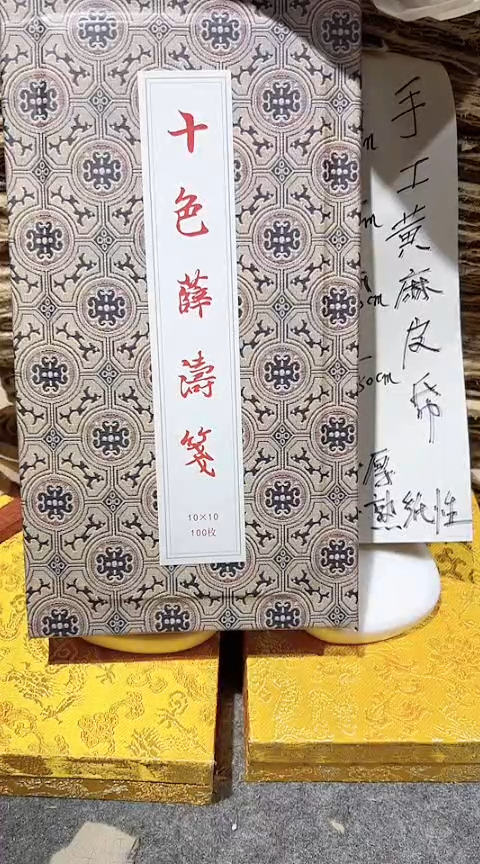 十色薛濤箋
10×10
100枚
手工黄麻皮帋
厚
熟纸性
m
m
cm
50cm